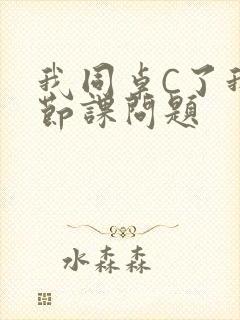 我同桌C了我
節課問題
水森森